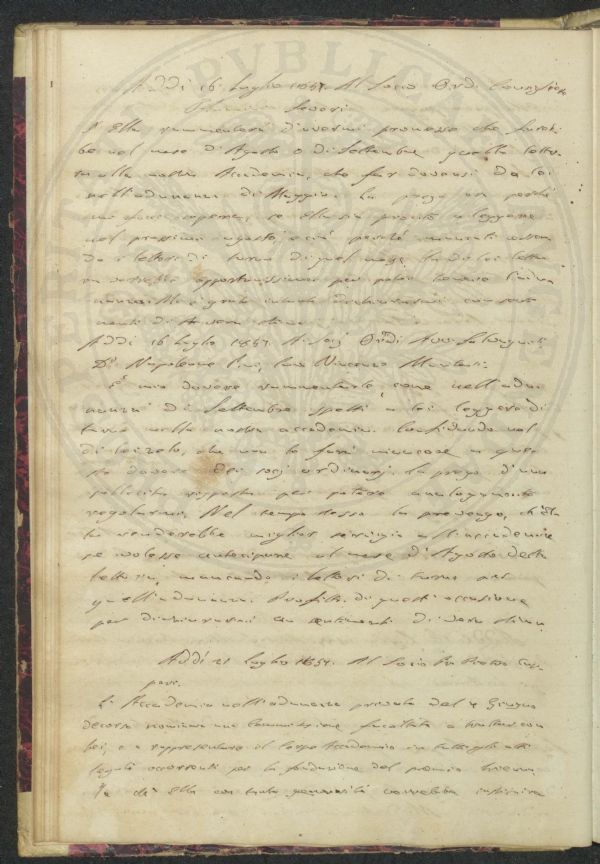 Addì 16 Luglio 1857. Al Socio Ord. Consigliere
Socori
Ella rammenterà d'avermi promesso che sareb-
be nel mese di Agosto o di Settembre quella lettu-
ra alla nostra Accademia, che far dovevasi da lei
nell'adunanza di Maggio. La prego ora perchè
mi faccia sapere, se Ella sia pronto a leggere
nel prossimo agosto, e ciò perchè mancati essen-
do i lettori di turno di quel mese, la di lei lettu-
ra sarebbe opportunissima per poter tenere l'adu-
nanza. Mi è grato intanto dichiararmi con senti-
menti di stima
Addì 16 Luglio 1857. Ai Socj Ordi Avv. Salvagnoli
Dr. Napoleone Pini, Cav. Vincenzo
È mio dovere rammentarle, come nell'adu-
nanza di Settembre spetti a lei leggere di
turno nella nostra accademia. Confidando nel
di lei zelo, che non la farà mancare a que-
sto dovere dei socj ordinarj, la prego d'una
sollecita risposta per potere analogamente
regolarmi. Nel tempo stesso la prevengo, ch'Ella
renderebbe miglior servigio all'accademia
se volesse anticipare al mese d'Agosto detta
lettura, mancando i lettori di turno per
quell'adunanza. Profitto di quest'occasione
per dichiararmi con sentimenti di vera stima
Addì 21 Luglio 1857. Al Socio Pietro
L'Accademia nell'adunanza privata del 4 Giugno
decorso nominava una Commissione facoltata a trattare con
lei, e a rappresentare il Corpo Accademico in tutti gli atti
legali occorrenti per la fondazione del premio
che Ella con tanta generosità vorrebbe istituire